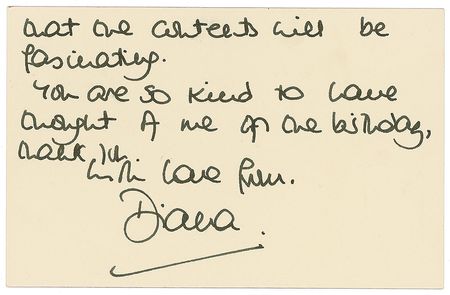 that the contents will be
fascinating.
You are so kind to have
thought of me on the birthday,
thank you.
with love from.
Diana.